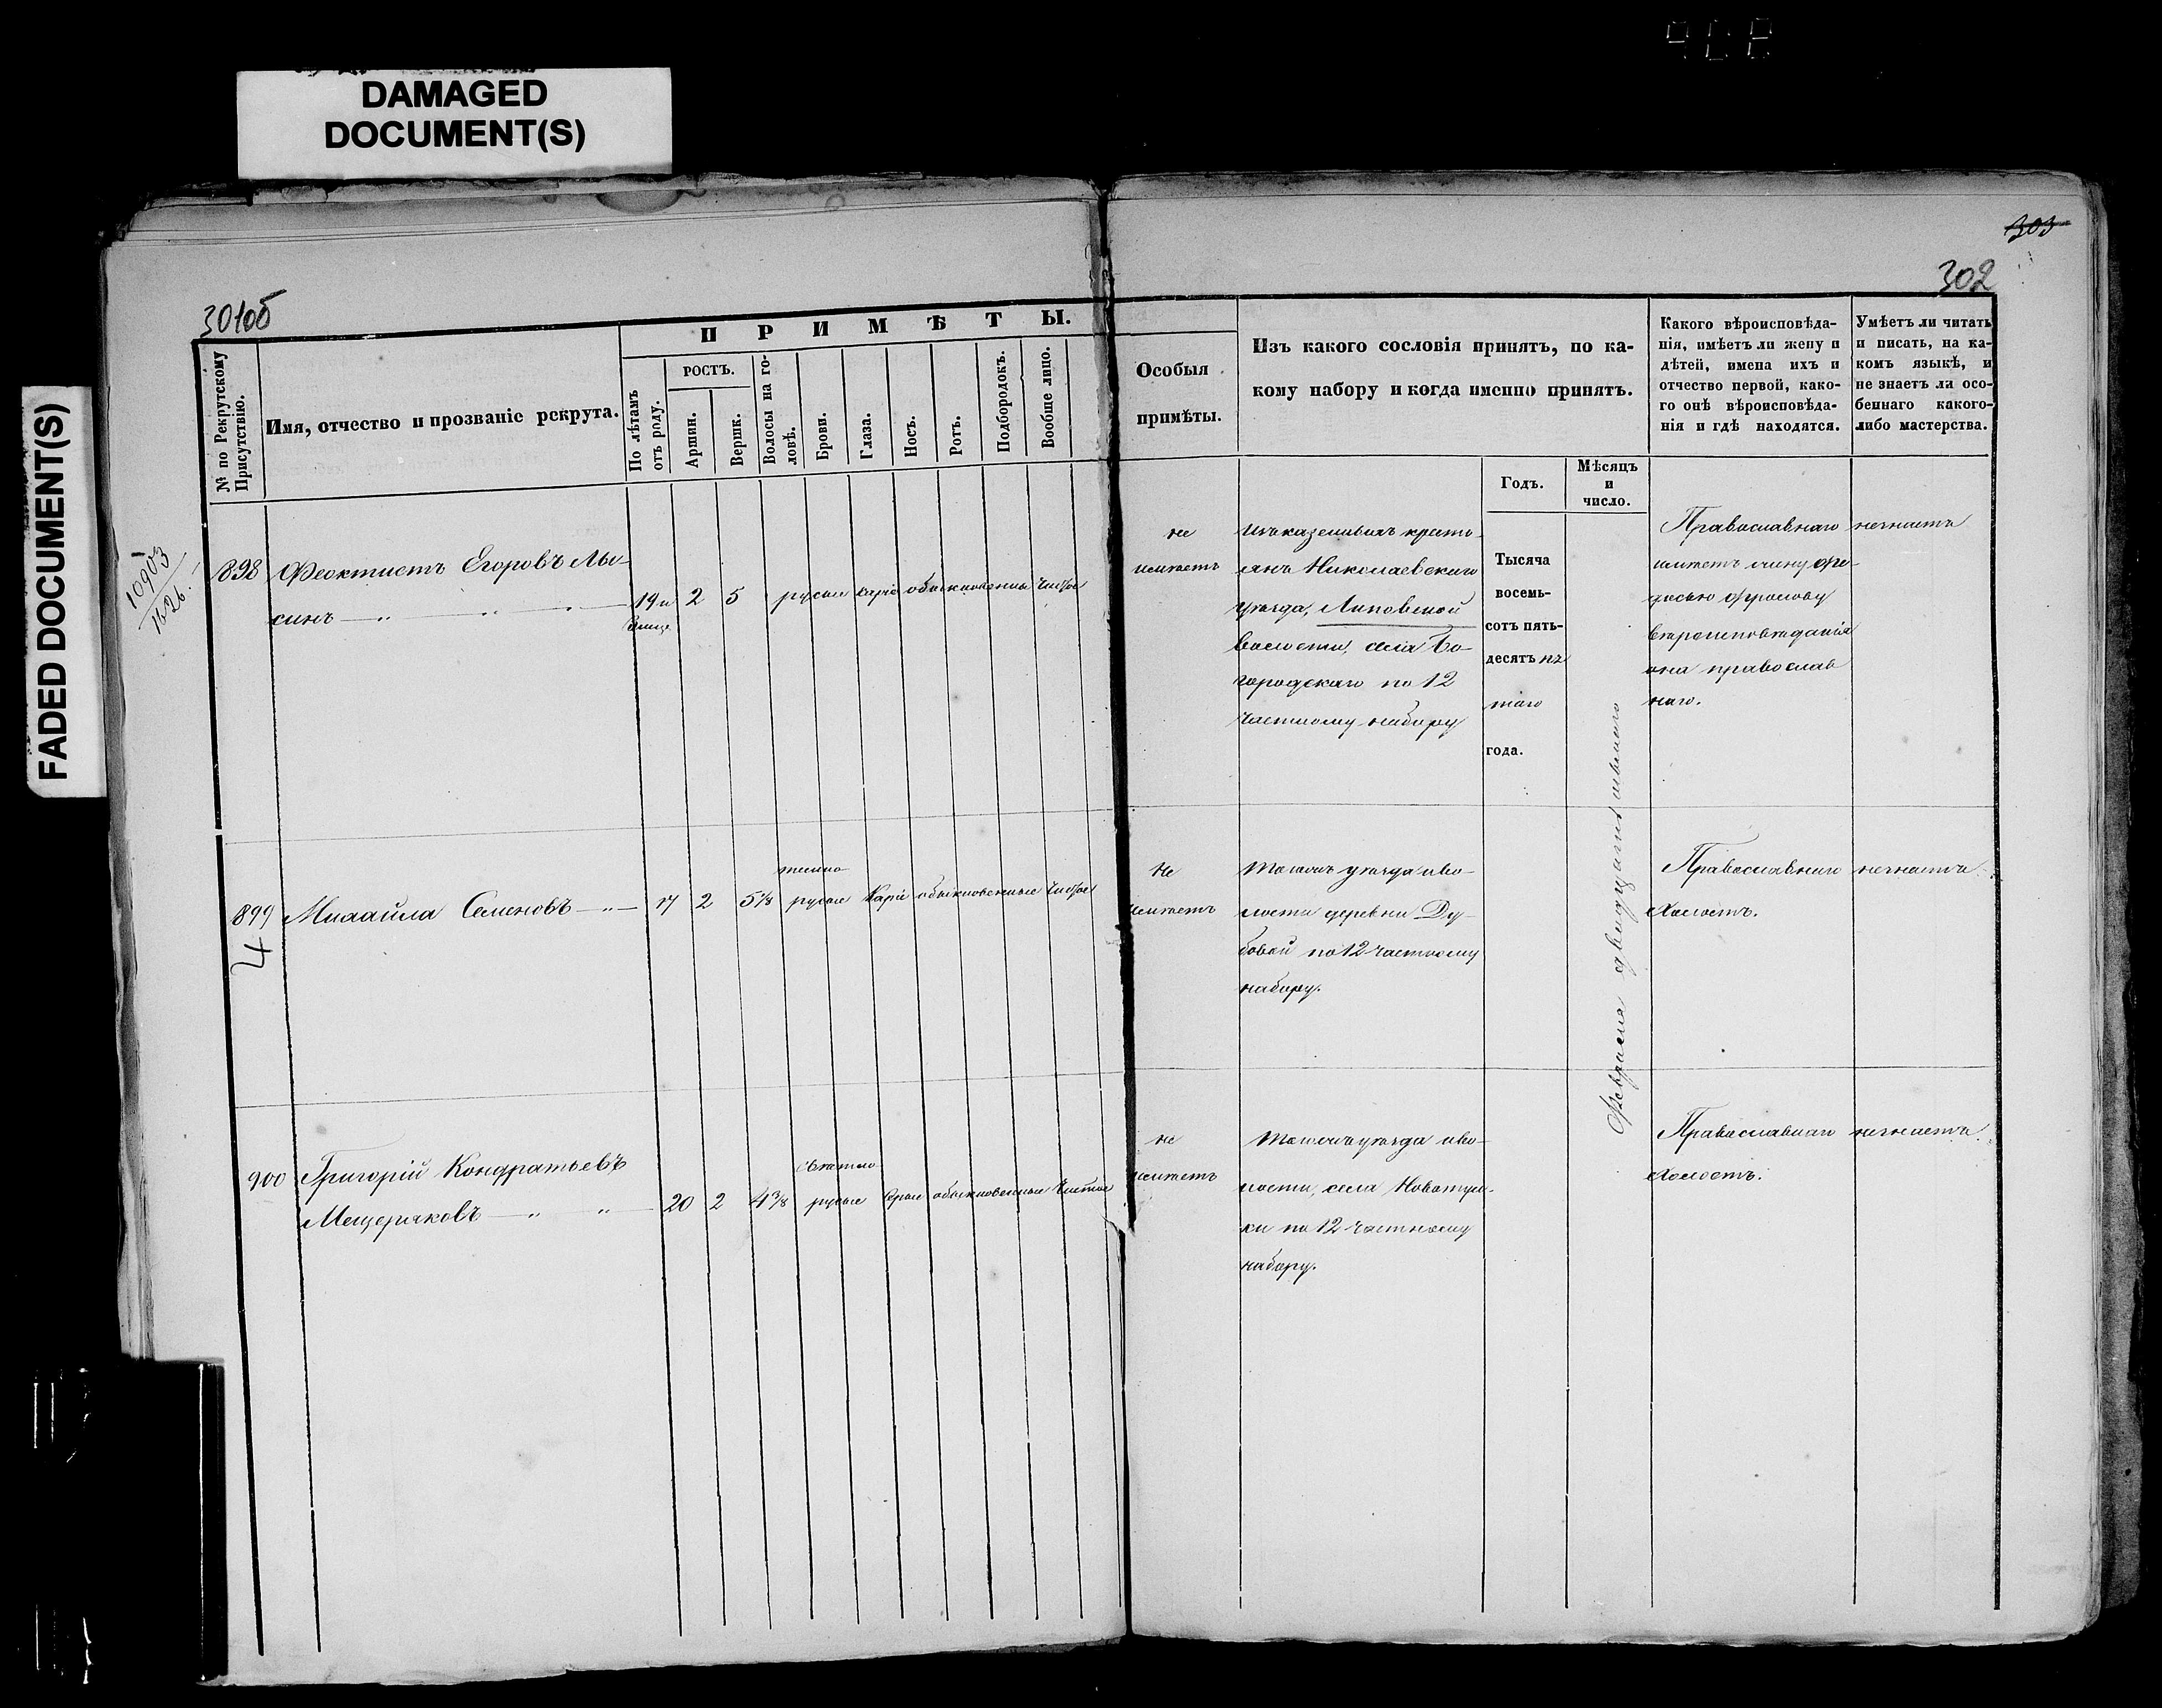 DAMAGED
DOCUMENT(S)
FADED DOCUMENT(S)
303
302
301об
10903
1626.
№ по Рекрутскому
Присутствію.
Имя, отчество и прозваніе рекрута.
ПРИМѢТЫ.
По лѣтамъ
отъ роду.
РОСТЪ.
Аршин.
Вершк.
Волосы на го-
ловѣ.
Брови.
Глаза.
Носъ.
Ротъ.
Подбородокъ.
Вообще лицо.
Особыя
примѣты.
Изъ какого сословія принятъ, по ка-
кому набору и когда именно принятъ.
Годъ.
Мѣсяцъ
и
число.
Какого вѣроисповѣда-
нія, имѣетъ ли жену и
дѣтей, имена ихъ и
отчество первой, како-
го онѣ вѣроисповѣда-
нія и гдѣ находятся.
Умѣетъ ли читать
и писать, на ка-
комъ языкѣ, и
не знаетъ ли осо-
беннаго какого-
либо мастерства.
898
Феоктистъ Егоровъ Лы-
синъ
19 и
2 5 русые карiе обыкновенные чистое
не
имѣетъ
Изъ казенныхъ кресть-
янъ Николаевскаго
уѣзда, Липовской
волости, села Бо-
городскаго по 12
частному набору
Тысяча
восемь-
сотъ пять-
десятъ пя
таго
года.
Февраля двадцать
Православнаго
имѣетъ жену Фе-
досью Фролову
вѣроисповѣданія
она православ
наго.
незнаетъ
899
4
Михайла Семеновъ
17 2 5 1/8
темно
русые карiе обыкновенные чистое
Не
имѣетъ
Тогожъ уѣзда иво-
лости деревни Ду-
бовой по 12 частному
набору.
Православнаго
Холостъ.
незнаетъ
900
Григорій Кондратьевъ
Мещеряковъ
20 2 4 3/8
свѣтло
русые сѣрые обыкновенные чистое
не
имѣетъ
Тогожъ уѣзда иво-
лости, села Новотул-
ки по 12 частному
набору.
Православнаго
Холостъ.
незнаетъ.